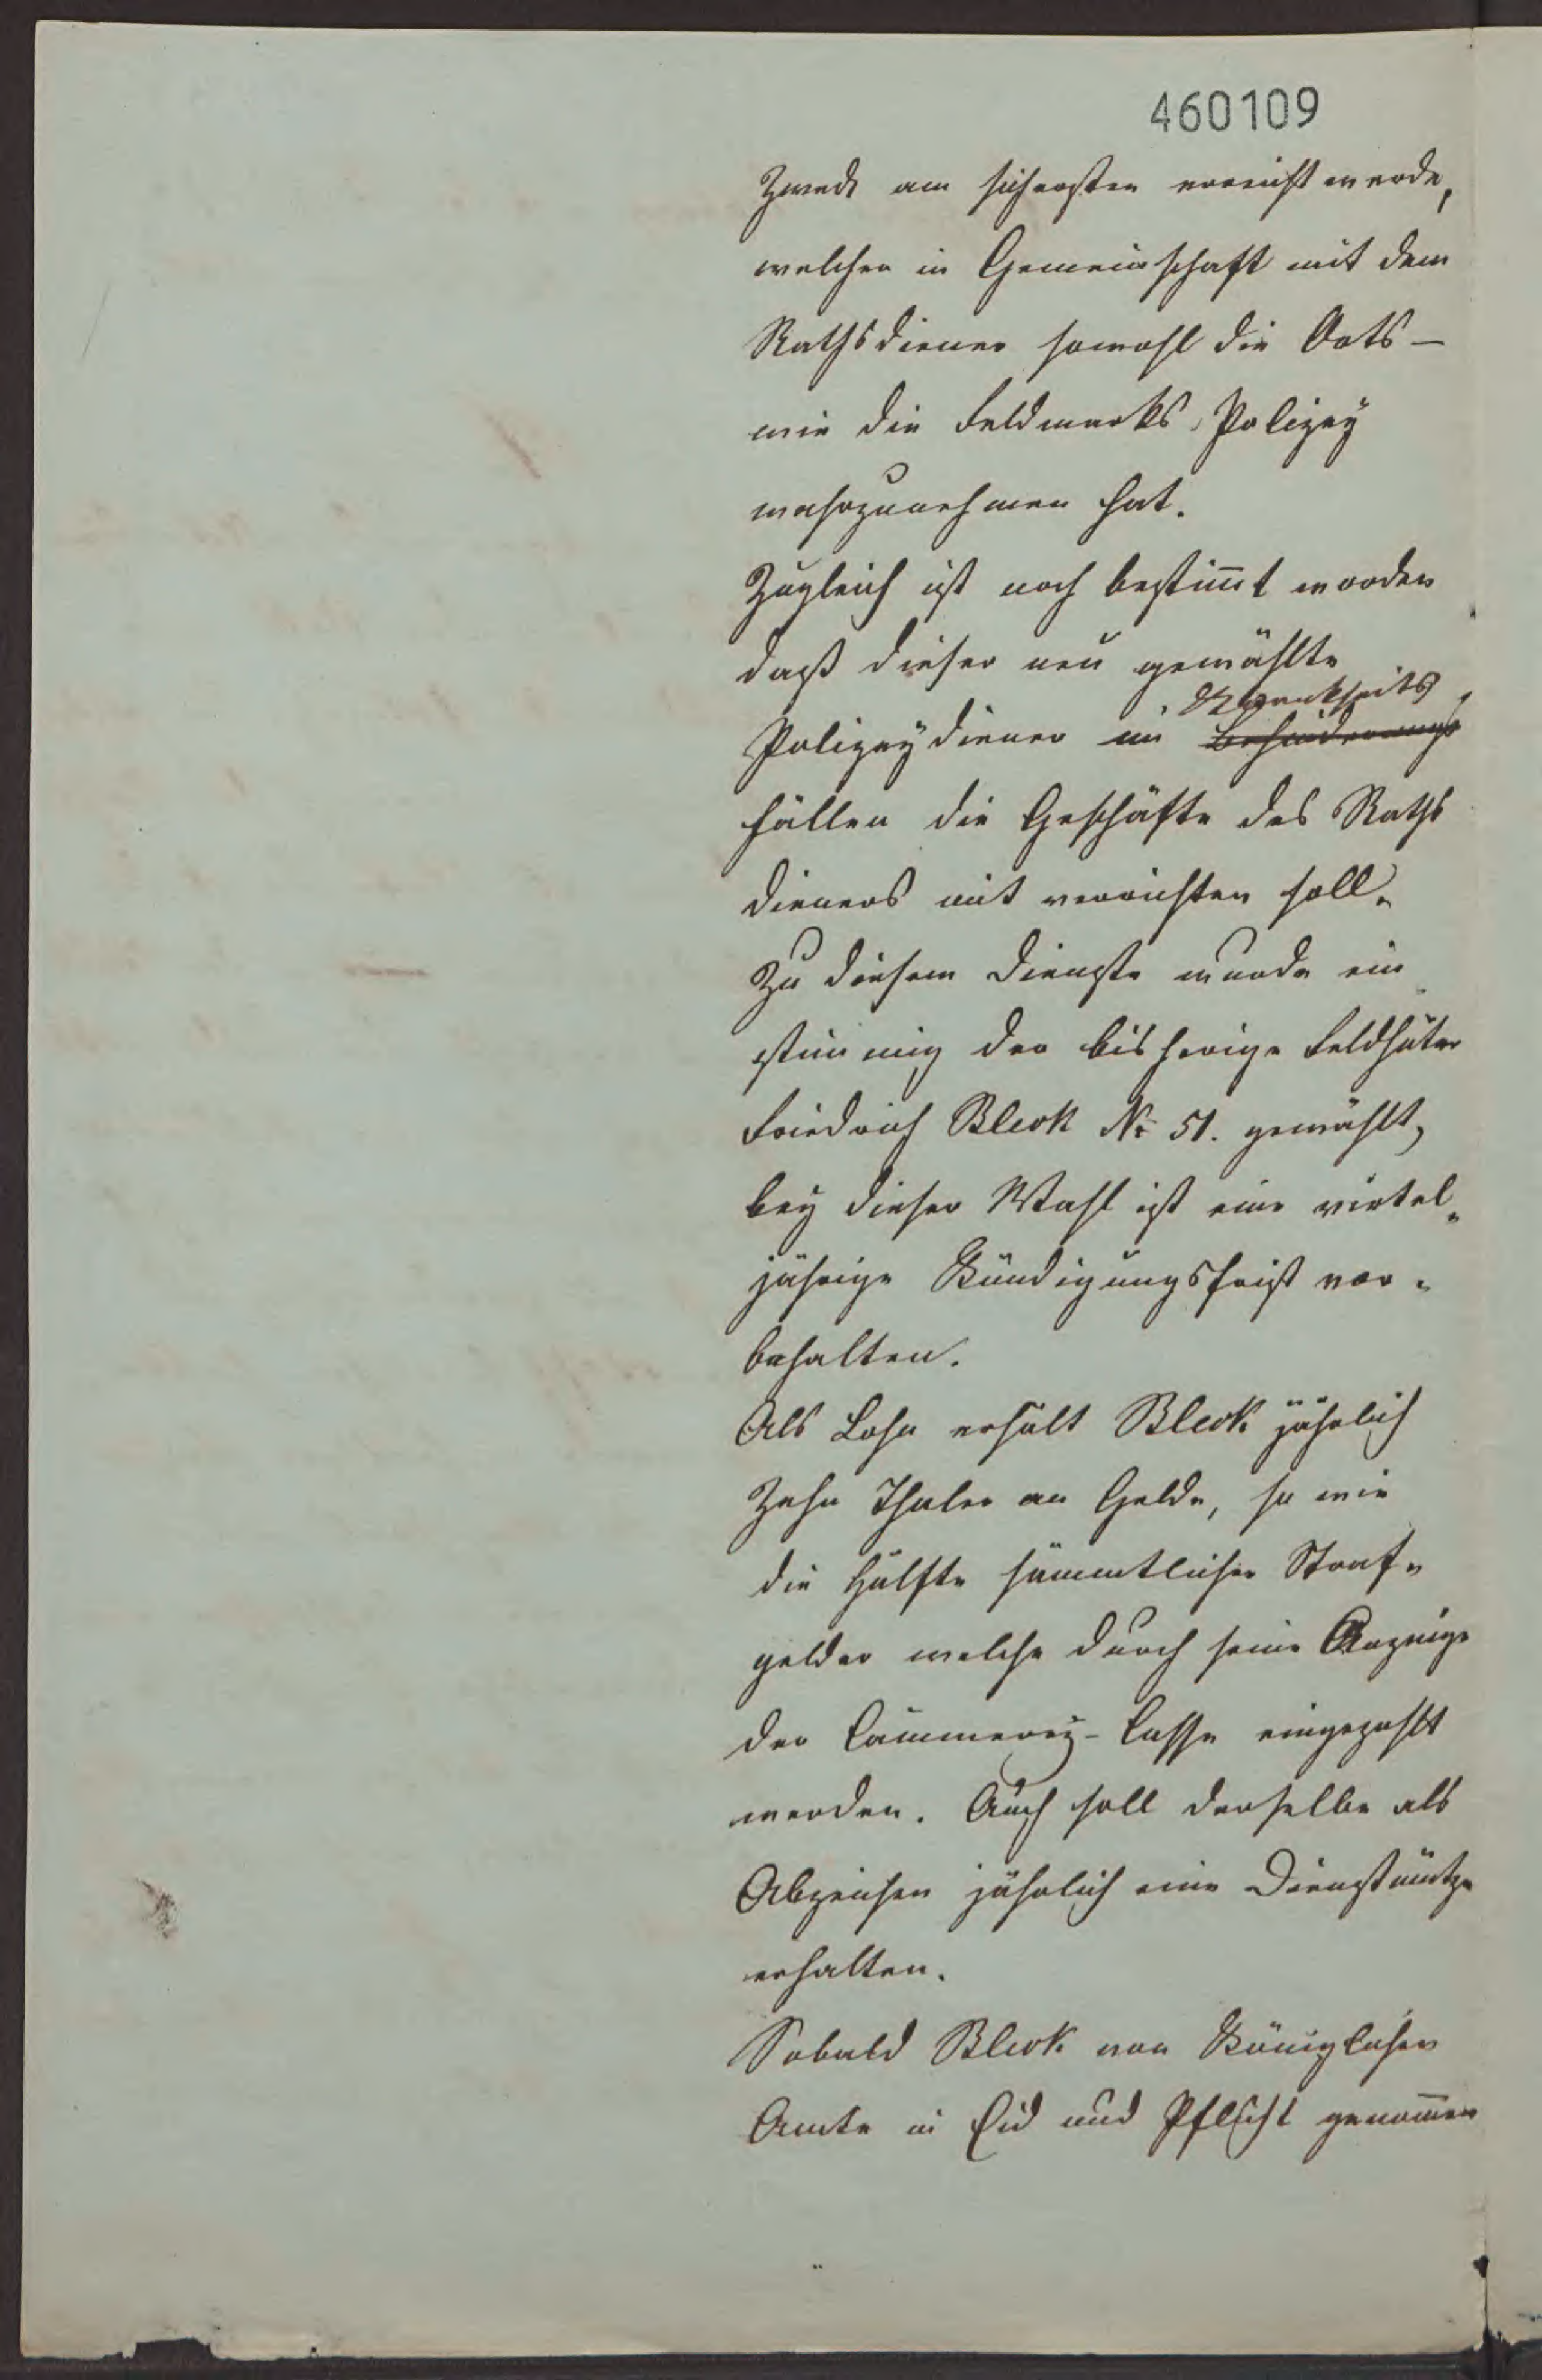 460109
Zweck am sichersten erreicht werde,
welcher in Gemeinschaft mit dem
Rathsdiener sowohl die Orts-
wie die Feldmarks, Polizey
wahrzunehmen hat.
Zugleich ist noch bestimt worden
daß dieser neu gewählte
Krankheits
Polizeydiener in Behinderungs
fällen die Geschäfte des Raths
dieners mit verrichten soll.
Zu diesem Dienste wurde ein
stimmig der bisherige Feldhüter
Friedrich Bleck No 51. gewählt,
bey dieser Wahl ist eine viertel-
jährige Kündigungsfrist vor-
behalten.
Als Lohn erhält Bleck jährlich
Zehn Thaler an Gelde, so wie
die Hälfte sämmtlicher Straf-
gelder welche durch seine Anzeige
der Cämmerey-Casse eingezahlt
werden. Auch soll derselbe als
Abzeichen jährlich eine Dienstmütze
erhalten.
Sobald Bleck von Königlichen
Amte in Eid und Pflicht genommen